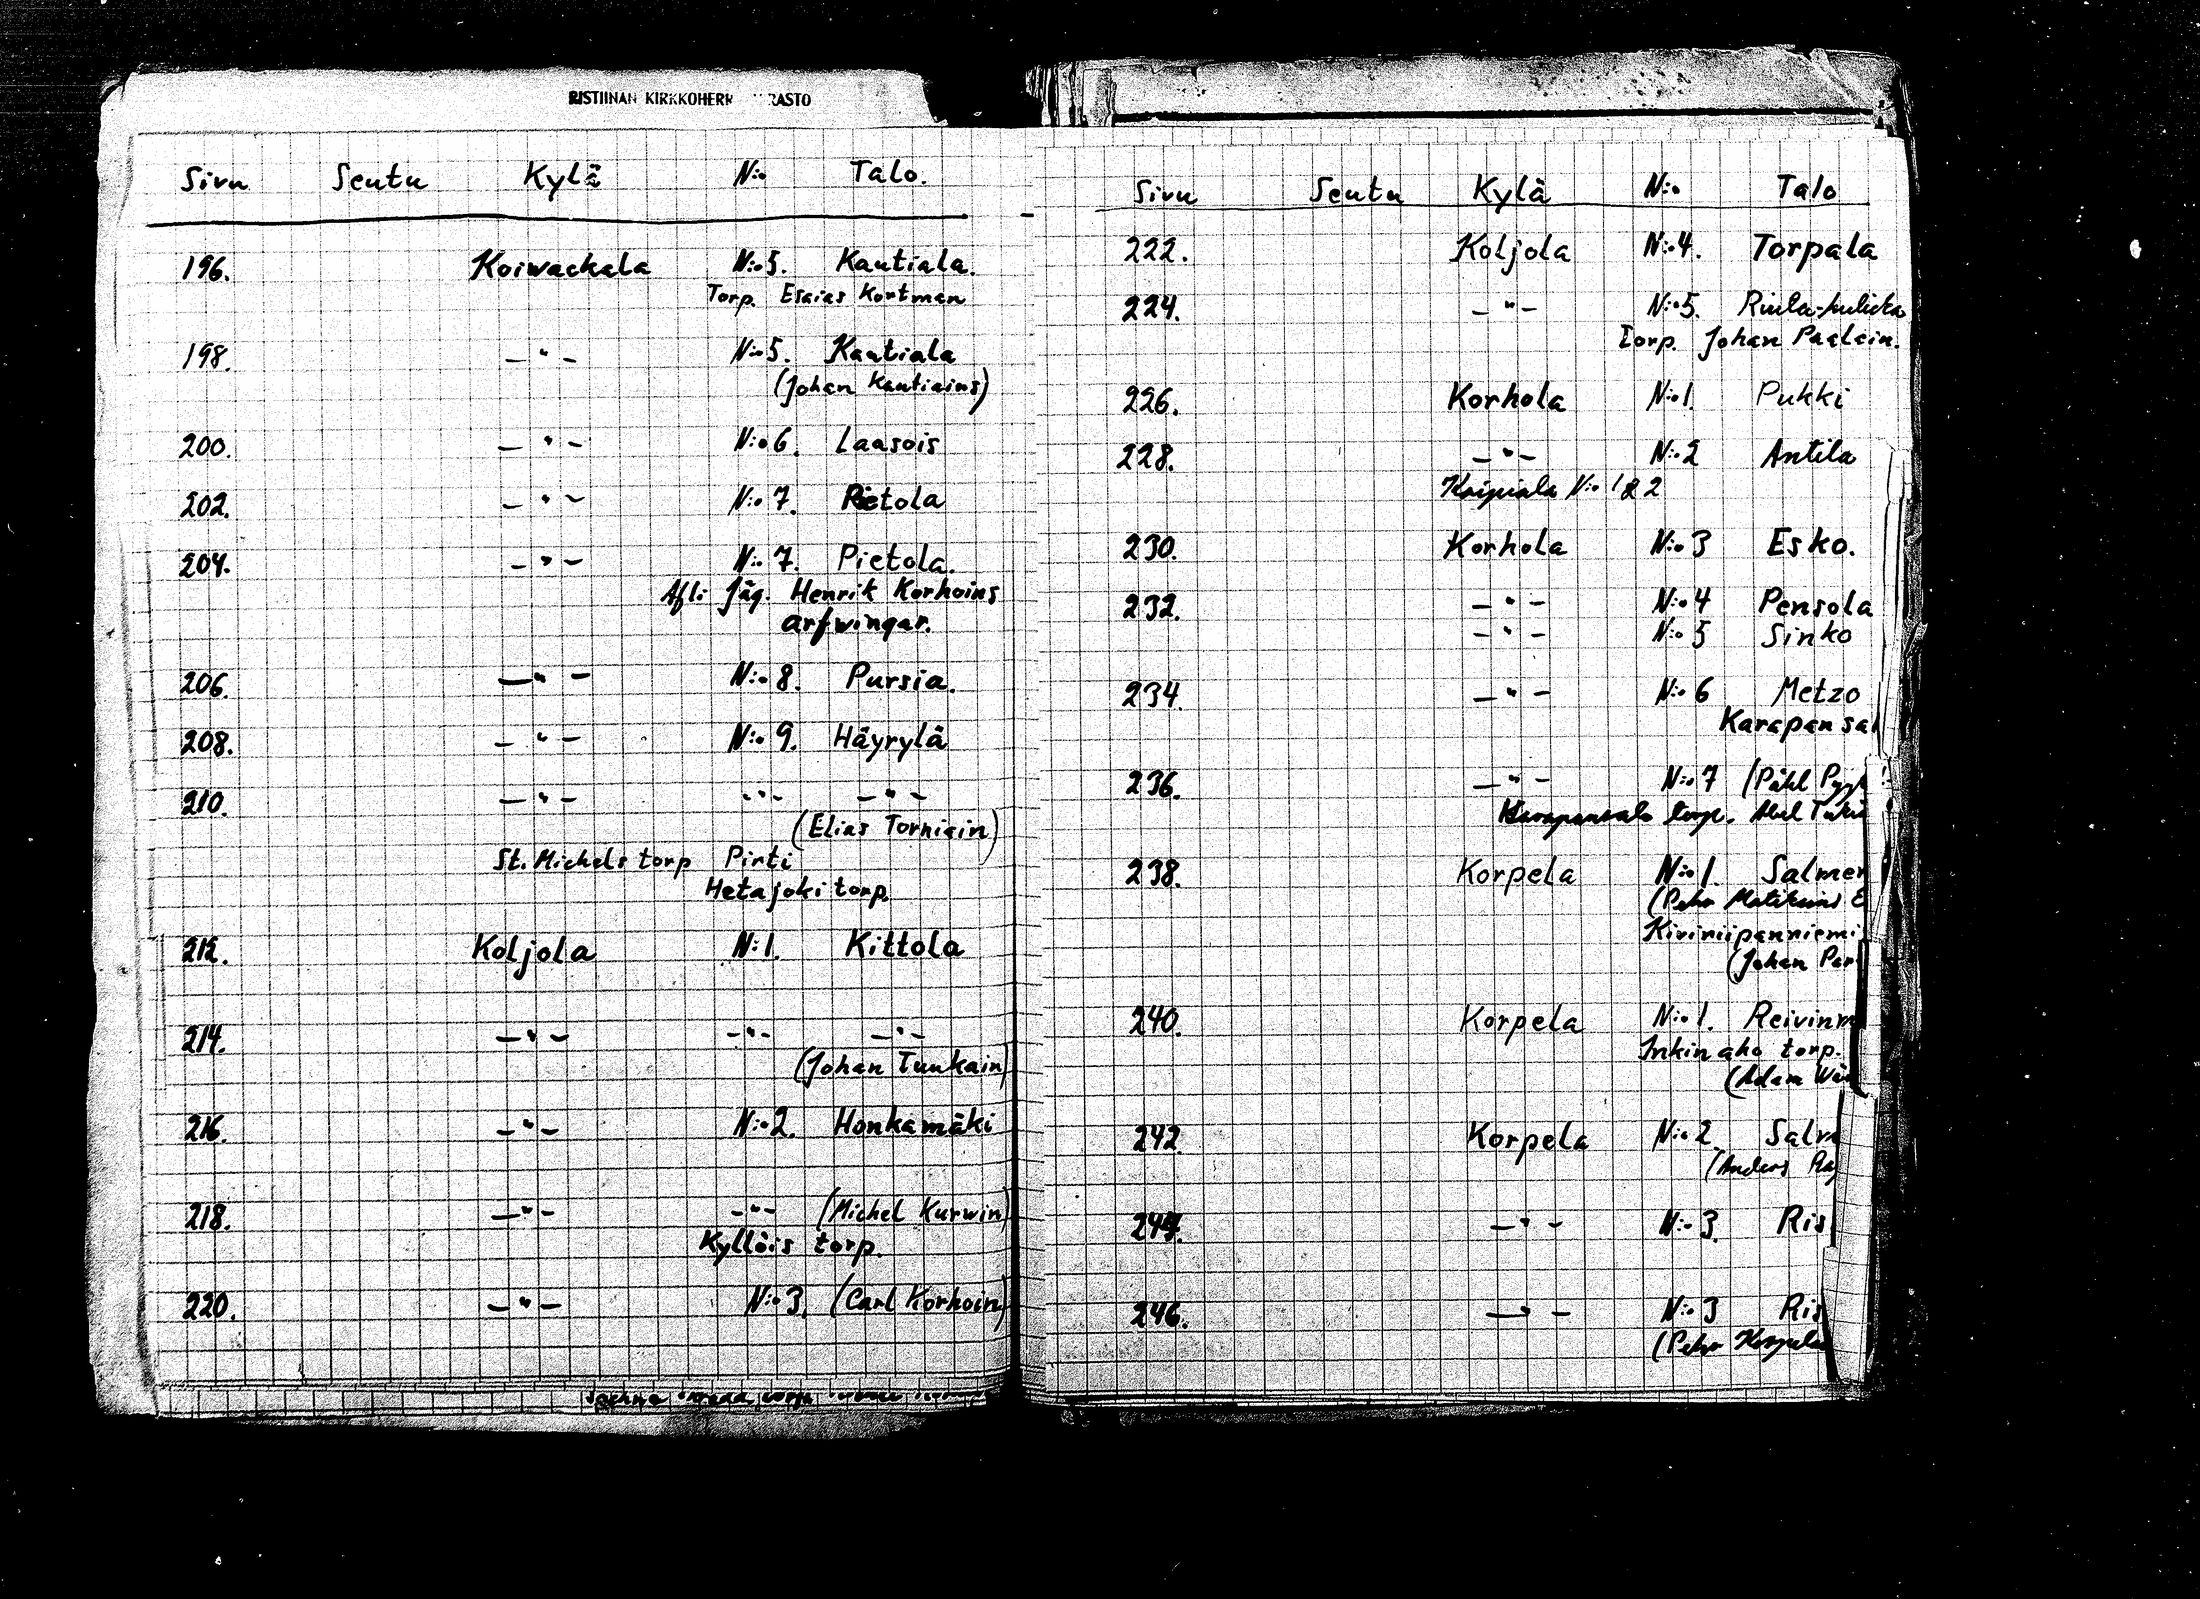 RISTIINAN KIRKKOHERR RASTO
Sivu Seutu Kylä N:o Talo.
196. Koiwackala N:o 5. Kautiala.
Torp. Esaias Kortman
198. –"– N:o 5. Kautiala
(Johan Kautiains)
200. –"– N:o 6. Laasois
202. –"– N:o 7. Pietola
204. –"– N:o 7. Pietola.
Afl: Jäg. Henrik Korhoins
arfwingar.
206. –"– N:o 8. Pursia.
208. –"– N:o 9. Häyrylä
210. –"– –"– –"–
(Elias Torniain)
St. Michels torp Pirti
Hetajoki torp.
212. Koljola N:1. Kittola
214. –"– –"– –"–
(Johan Tuukain)
216. –"– N:o 2. Honkamäki
218. –"– –"– (Michel Kurwin)
Kyllöis torp.
220. –"– N:o 3. (Carl Korhoin)
Sivu Seutu Kylä N:o Talo
222. Koljola N:o 4. Torpala
224. –"– N:o 5.
Torp. Johan Paalain.
226. Korhola N:o 1. Pukki
228. –"– N:o 2 Antila
N:o 1 & 2
230. Korhola N:o 3 Esko.
232. –"– N:o 4 Pensola
–"– N:o 5 Sinko
234. –"– N:o 6 Metzo
Karapansal
236. –"– N:o 7 (Påhl Pyyk
Karapansalo torp. Abel
238. Korpela N:o 1. Salmen
(Pehr
Kiviniipanniemi
(Johan Par
240. Korpela N:o 1. Reivinm
Inkinaho torp.
(Adam
242. Korpela N:o 2 Salm
(Anders
244. –"– N:o 3. Ris
246. –"– N:o 3 Ris
(Pehr Korpela